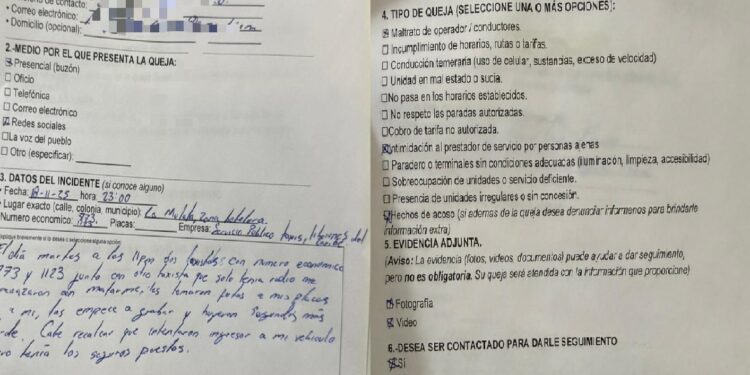 de contacto:
• Correo electrónico:
• Domicilio (opcional):
2.-MEDIO POR EL QUE PRESENTA LA QUEJA:
Presencial (buzón)
Oficio
Telefónica
Correo electrónico
Redes sociales
La voz del pueblo
Otro (especificar):
3. DATOS DEL INCIDENTE (si conoce alguno)
• Fecha: 18-11-25 hora 23:00
• Lugar exacto (calle, colonia, municipio): La Mulata, zona hotelera
Numero economico: 973 Placas: Empresa: Servicio Público taxis, del
El día martes a las 11pm dos con número económico
973 y 1123 junto con otro taxista que solo tenía radio me
con matarme, les tomaron fotos a mis placas
a mi, los empecé a grabar y huyeron segundos más
Cabe recalcar que intentaron ingresar a mi vehículo
tenía los seguros puestos.
4. TIPO DE QUEJA (SELECCIONE UNA O MÁS OPCIONES):
Maltrato de operador / conductores.
Incumplimiento de horarios, rutas o tarifas.
Conducción temeraria (uso de celular, sustancias, exceso de velocidad)
Unidad en mal estado o sucia.
No pasa en los horarios establecidos.
No respeta las paradas autorizadas.
Cobro de tarifa no autorizada.
Intimidación al prestador de servicio por personas ajenas
Paradero o terminales sin condiciones adecuadas (iluminacion, limpieza, accesibilidad)
Sobreocupación de unidades o servicio deficiente.
Presencia de unidades irregulares o sin concesión.
Hechos de acoso (si ademas de la queja desea denunciar informenos para brindarle
información extra)
5. EVIDENCIA ADJUNTA.
(Aviso: La evidencia (fotos, videos, documentos) puede ayudar a dar seguimiento,
pero no es obligatoria. Su queja será atendida con la información que proporcione)
Fotografía
Video
6.-DESEA SER CONTACTADO PARA DARLE SEGUIMIENTO
Sí